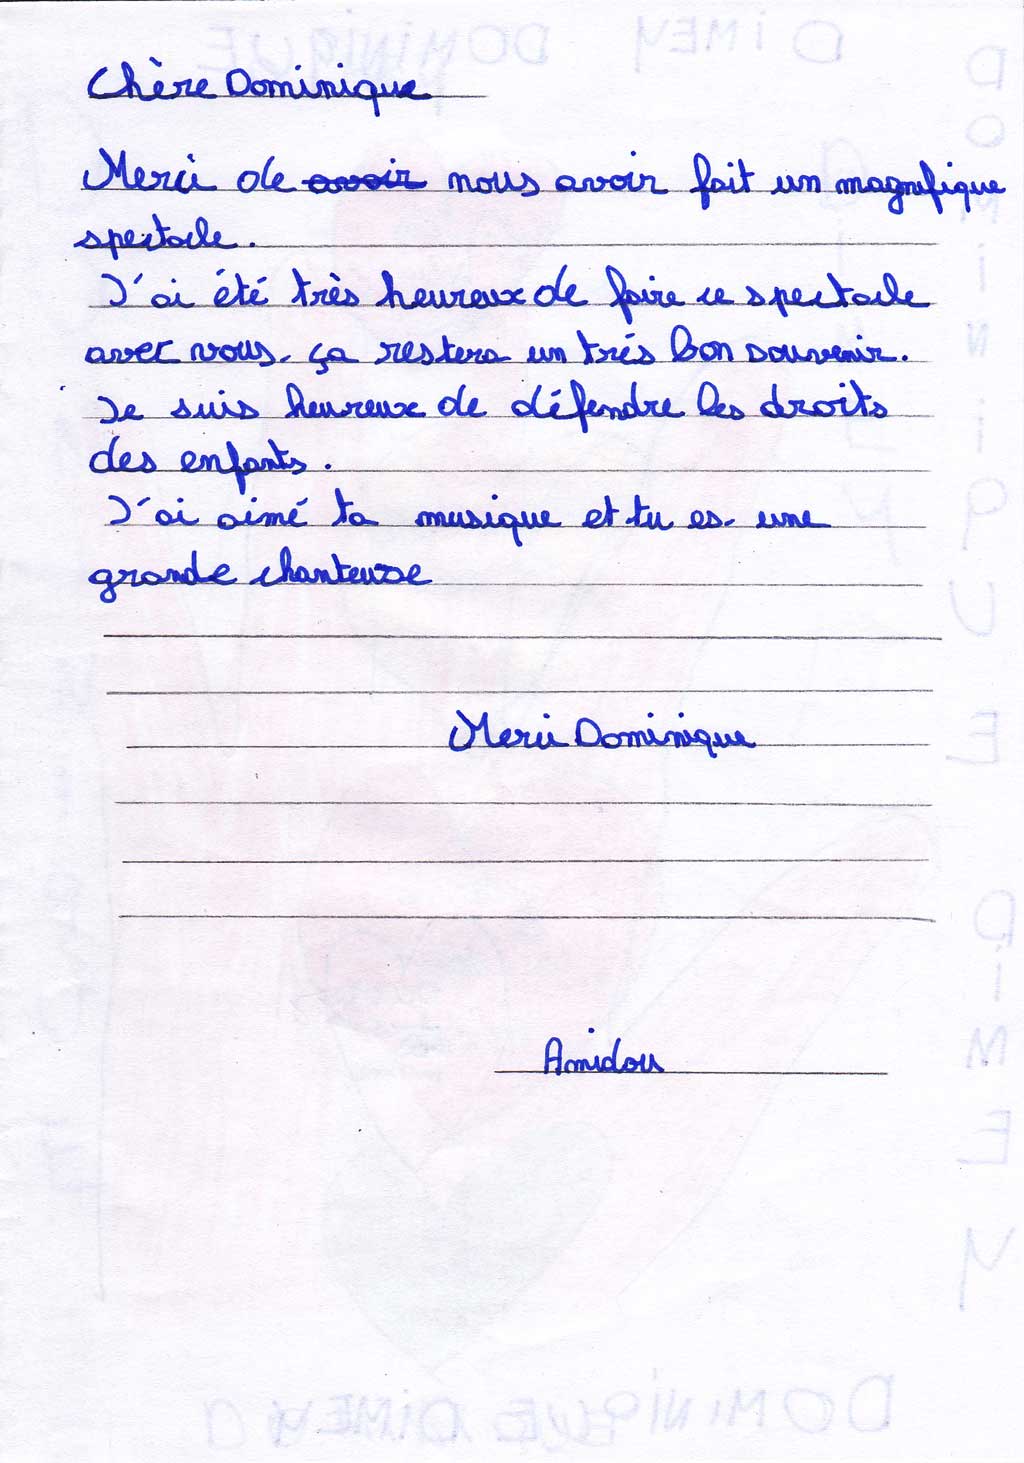 Chère Dominique
Merci de avoir nous avoir fait un magnifique
spectacle.
J'ai été très heureux de faire ce spectacle
avec vous. ça restera un trés bon souvenir.
Je suis heureux de défendre les droits
des enfants.
J'ai aimé ta musique et tu es une
grande chanteuse
Merci Dominique
Amidou
DIMEY DOMINIQUE
DOMINIQUE DIMEY
DOMINIQUE DIMEY